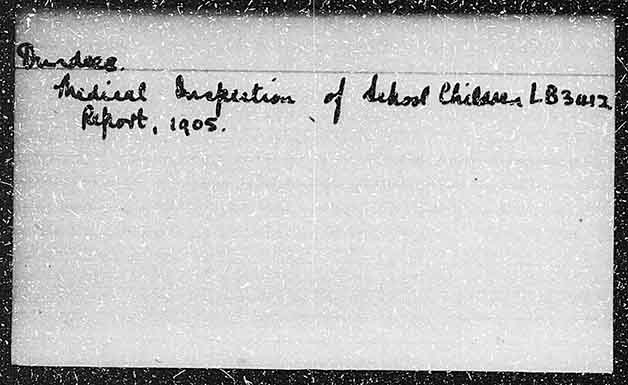 Dundee.
Medical Inspection of School Children LB3412
Report, 1905.